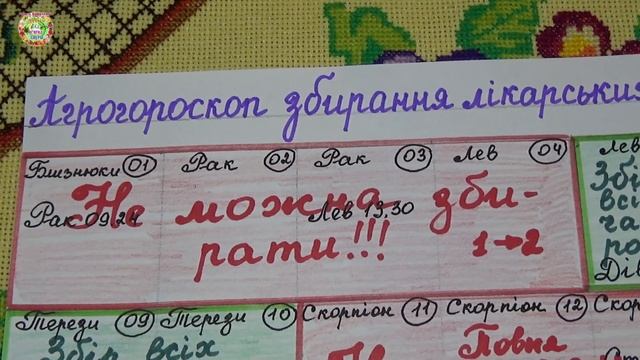 Агрогороскоп збирання лікарських
Близнюки 01 Рак 02 Рак 03 Лев 04
Рак 09.24 Лев 13.30
Не можна зби-
рати!!!
1→2
Лев
Збір
всіх
Терези 09 Терези 10 Скорпіон 11 Скорпіон 12
Збір всіх
Не
Повня